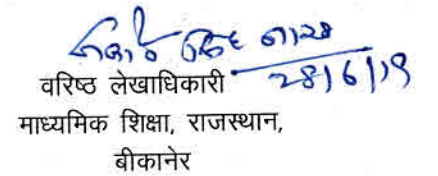 28/6/19
वरिष्ठ लेखाधिकारी
माध्यमिक शिक्षा, राजस्थान,
बीकानेर